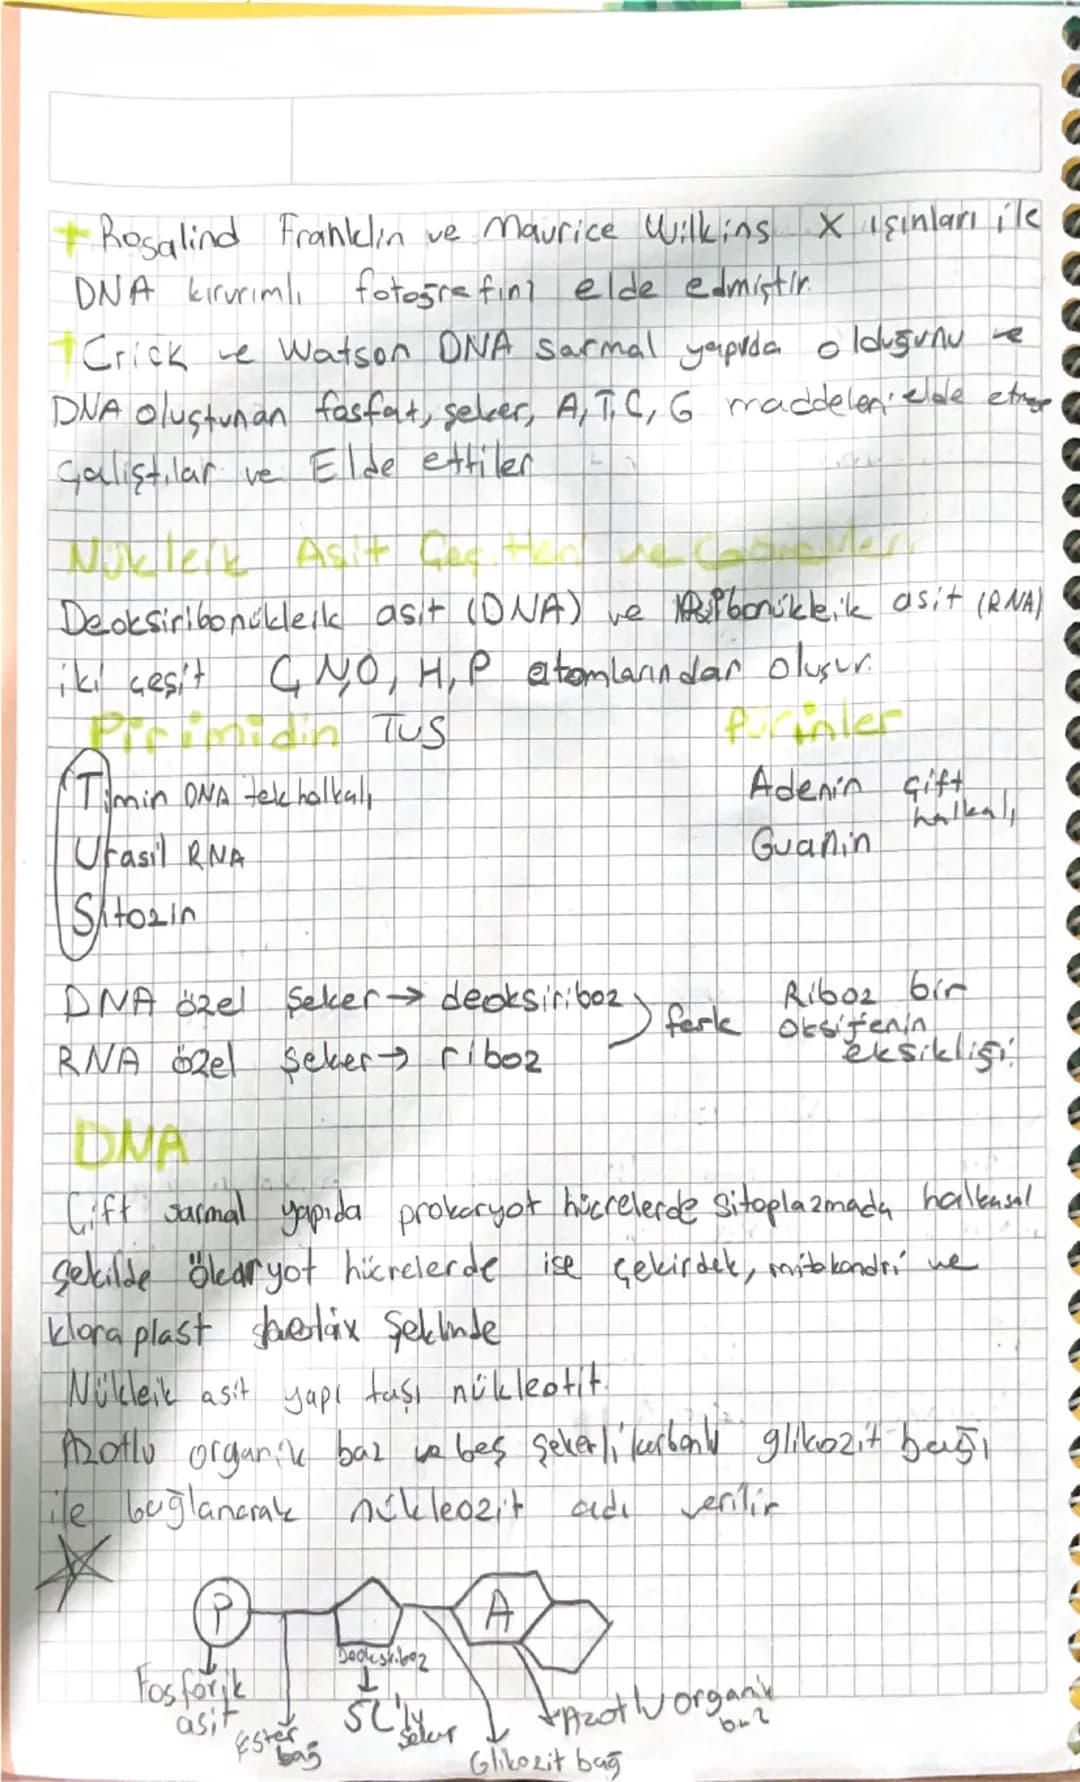 + Rosalind Franklin ve Maurice Wilkins X ışınları ile
DNA kırırımlı fotoğrafını elde edmiştir.
+ Crick ve Watson DNA sarmal yapıda olduğunu ve
DNA oluştunan fosfat, şeker, A, T, C, G maddeleri elde etmeye
çalıştılar ve Elde ettiler
Nükleik Asit Çeşitleri ve
Deoksiribonükleik asit (DNA) ve Ribonükleik asit (RNA)
iki çeşit C, N, O, H, P atomlarından oluşur.
Pirimidin TUS
Pürinler
Timin DNA tek halkalı
Adenin çift halkalı
Urasil RNA
Guanin
Sitozin
DNA özel Şeker → deoksiriboz
RNA özel Şeker → riboz
fark
Riboz bir
oksijenin
eksikliği
DNA
Çift sarmal yapıda prokaryot hücrelerde sitoplazmada halkasal
şekilde ökaryot hücrelerde ise çekirdek, mitokondri ve
kloraplast şeklinde
Nükleik asit yapı taşı nükleotit.
Azotlu organik baz ve beş şekerli karbonlu glikozit bağı
ile bağlanarak nükleozit adı verilir
P
A
Deoksiriboz
Fosforik
asit
Ester
bağ
5C'lu
şeker
Glikozit bağ
Azotlu organik
baz